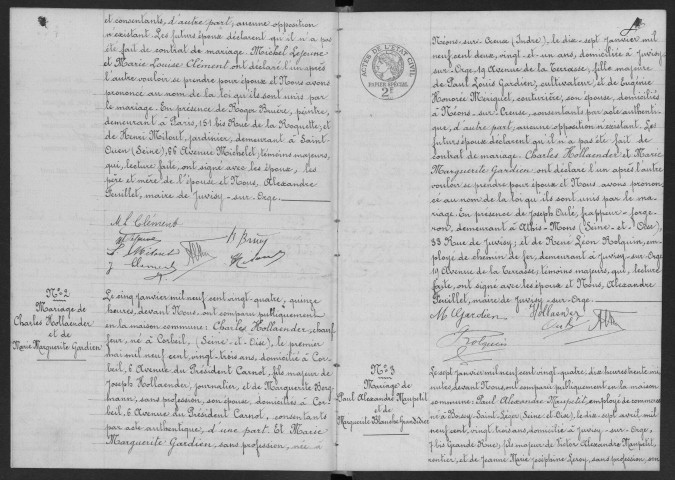 et consentants, d'autre part, aucune opposition
n'existant. Les futurs époux déclarent qu'il n'a pas
été fait de contrat de mariage. Michel Lejeune
et Marie Louise Clément ont déclaré l'un après
l'autre vouloir se prendre pour époux et Nous avons
prononcé au nom de la loi qu'ils sont unis par
le mariage. En présence de Roger Bruère, peintre,
demeurant à Paris, 151 bis Rue de la Roquette, et
de Henri Milout, jardinier, demeurant à Saint-
Ouen (Seine), 66 Avenue Michelet, témoins majeurs,
qui, lecture faite, ont signé avec les époux, les
père et mère de l'épouse et Nous, Alexandre
Feuillet, maire de Juvisy-sur-Orge.
M L Clément
J Clément
N° 2
Mariage de
Charles Hollaender
et de
Marie Marguerite Gardien
Le cinq janvier mil neuf cent vingt-quatre, quinze
heures, devant Nous, ont comparu publiquement
en la maison commune: Charles Hollaender, chauf-
feur, né à Corbeil, (Seine-et-Oise), le premier
mai mil neuf cent, vingt-trois ans, domicilié à Cor-
beil, 6 Avenue du Président Carnot, fils majeur de
Joseph Hollaender, journalier, et de Marguerite
sans profession, son épouse, domiciliés à Cor-
beil, 6 Avenue du Président Carnot, consentants
par acte authentique, d'une part. Et Marie
Marguerite Gardien, sans profession, née à
ACTES DE L'ÉTAT CIVIL
PAPIER SPÉCIAL
2F
Néons-sur-Creuse (Indre), le dix-sept janvier mil
neuf cent deux, vingt-et-un ans, domiciliée à Juvisy-
sur-Orge, 19 Avenue de la Terrasse, fille majeure
de Paul Louis Gardien, cultivateur, et de Eugénie
Honorée Meriguet, couturière, son épouse, domiciliés
à Néons-sur-Creuse, consentants par acte authenti-
que, d'autre part, aucune opposition n'existant. Les
futurs époux déclarent qu'il n'y a pas été fait de
contrat de mariage. Charles Hollaender et Marie
Marguerite Gardien ont déclaré l'un après l'autre
vouloir se prendre pour époux et Nous avons pronon-
cé au nom de la loi qu'ils sont unis par le ma-
riage. En présence de Joseph Oulé, frappeur-forge-
ron, demeurant à Athis-Mons (Seine-et-Oise),
33 Rue de Juvisy; et de René Léon Rolquin, em-
ployé de chemin de fer, demeurant à Juvisy-sur-Orge
19 Avenue de la Terrasse, témoins majeurs, qui, lecture
faite, ont signé avec les époux et Nous, Alexandre
Feuillet, maire de Juvisy-sur-Orge.
M Gardien Hollaender
Rolquin
N° 3
Mariage de
Paul Alexandre Naupetit
et de
Marguerite Blanche Grandidier
Le sept janvier mil neuf cent vingt-quatre, dix heures trente mi-
nutes, devant Nous, ont comparu publiquement en la maison
commune: Paul Alexandre Naupetit, employé de commerce,
né à Boissy-Saint-Léger (Seine-et-Oise), le dix-sept avril mil
neuf cent, vingt-trois ans, domicilié à Juvisy-sur-Orge,
7 bis Grande Rue, fils majeur de Victor Alexandre Naupetit,
rentier, et de Jeanne Marie Joséphine Leroy, sans profession, son